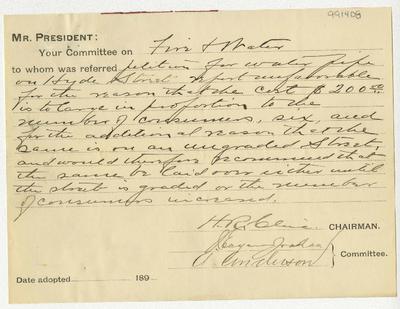 991408
MR. PRESIDENT:
Your Committee on Fire & Water
to whom was referred petition for water pipe
on Hyde Street report unfavorable
for the reason that the cost $200.00
is to large in proportion to the
number of consumers, six, and
for the additional reason that the
same is on an ungraded Street,
and would therefore recommend that
the same be laid over either until
the street is graded or the number
of consumers increased.
H.R. CHAIRMAN.
Committee.
Date adopted 189